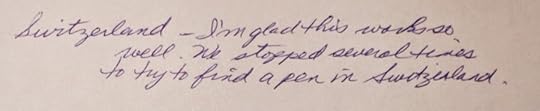 Switzerland - I'm glad this works so
well. We stopped several times
to try to find a pen in Switzerland.